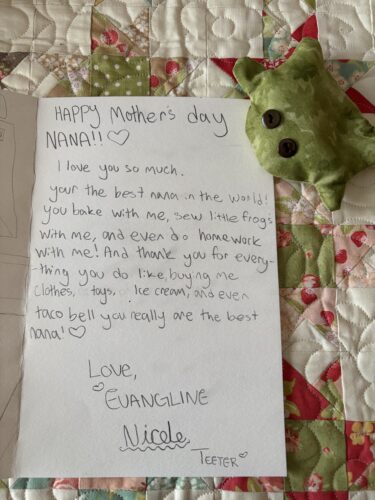 HAPPY Mother's day
NANA!! ♡
I love you so much.
your the best nana in the world!
you bake with me, sew little frogs
with me, and even do homework
with me! And thank you for every-
-thing you do like, buying me
clothes, toys, Ice cream, and even
taco bell you really are the best
nana! ♡
LOVE,
♡ EVANGLINE
Nicole
TEETER ♡